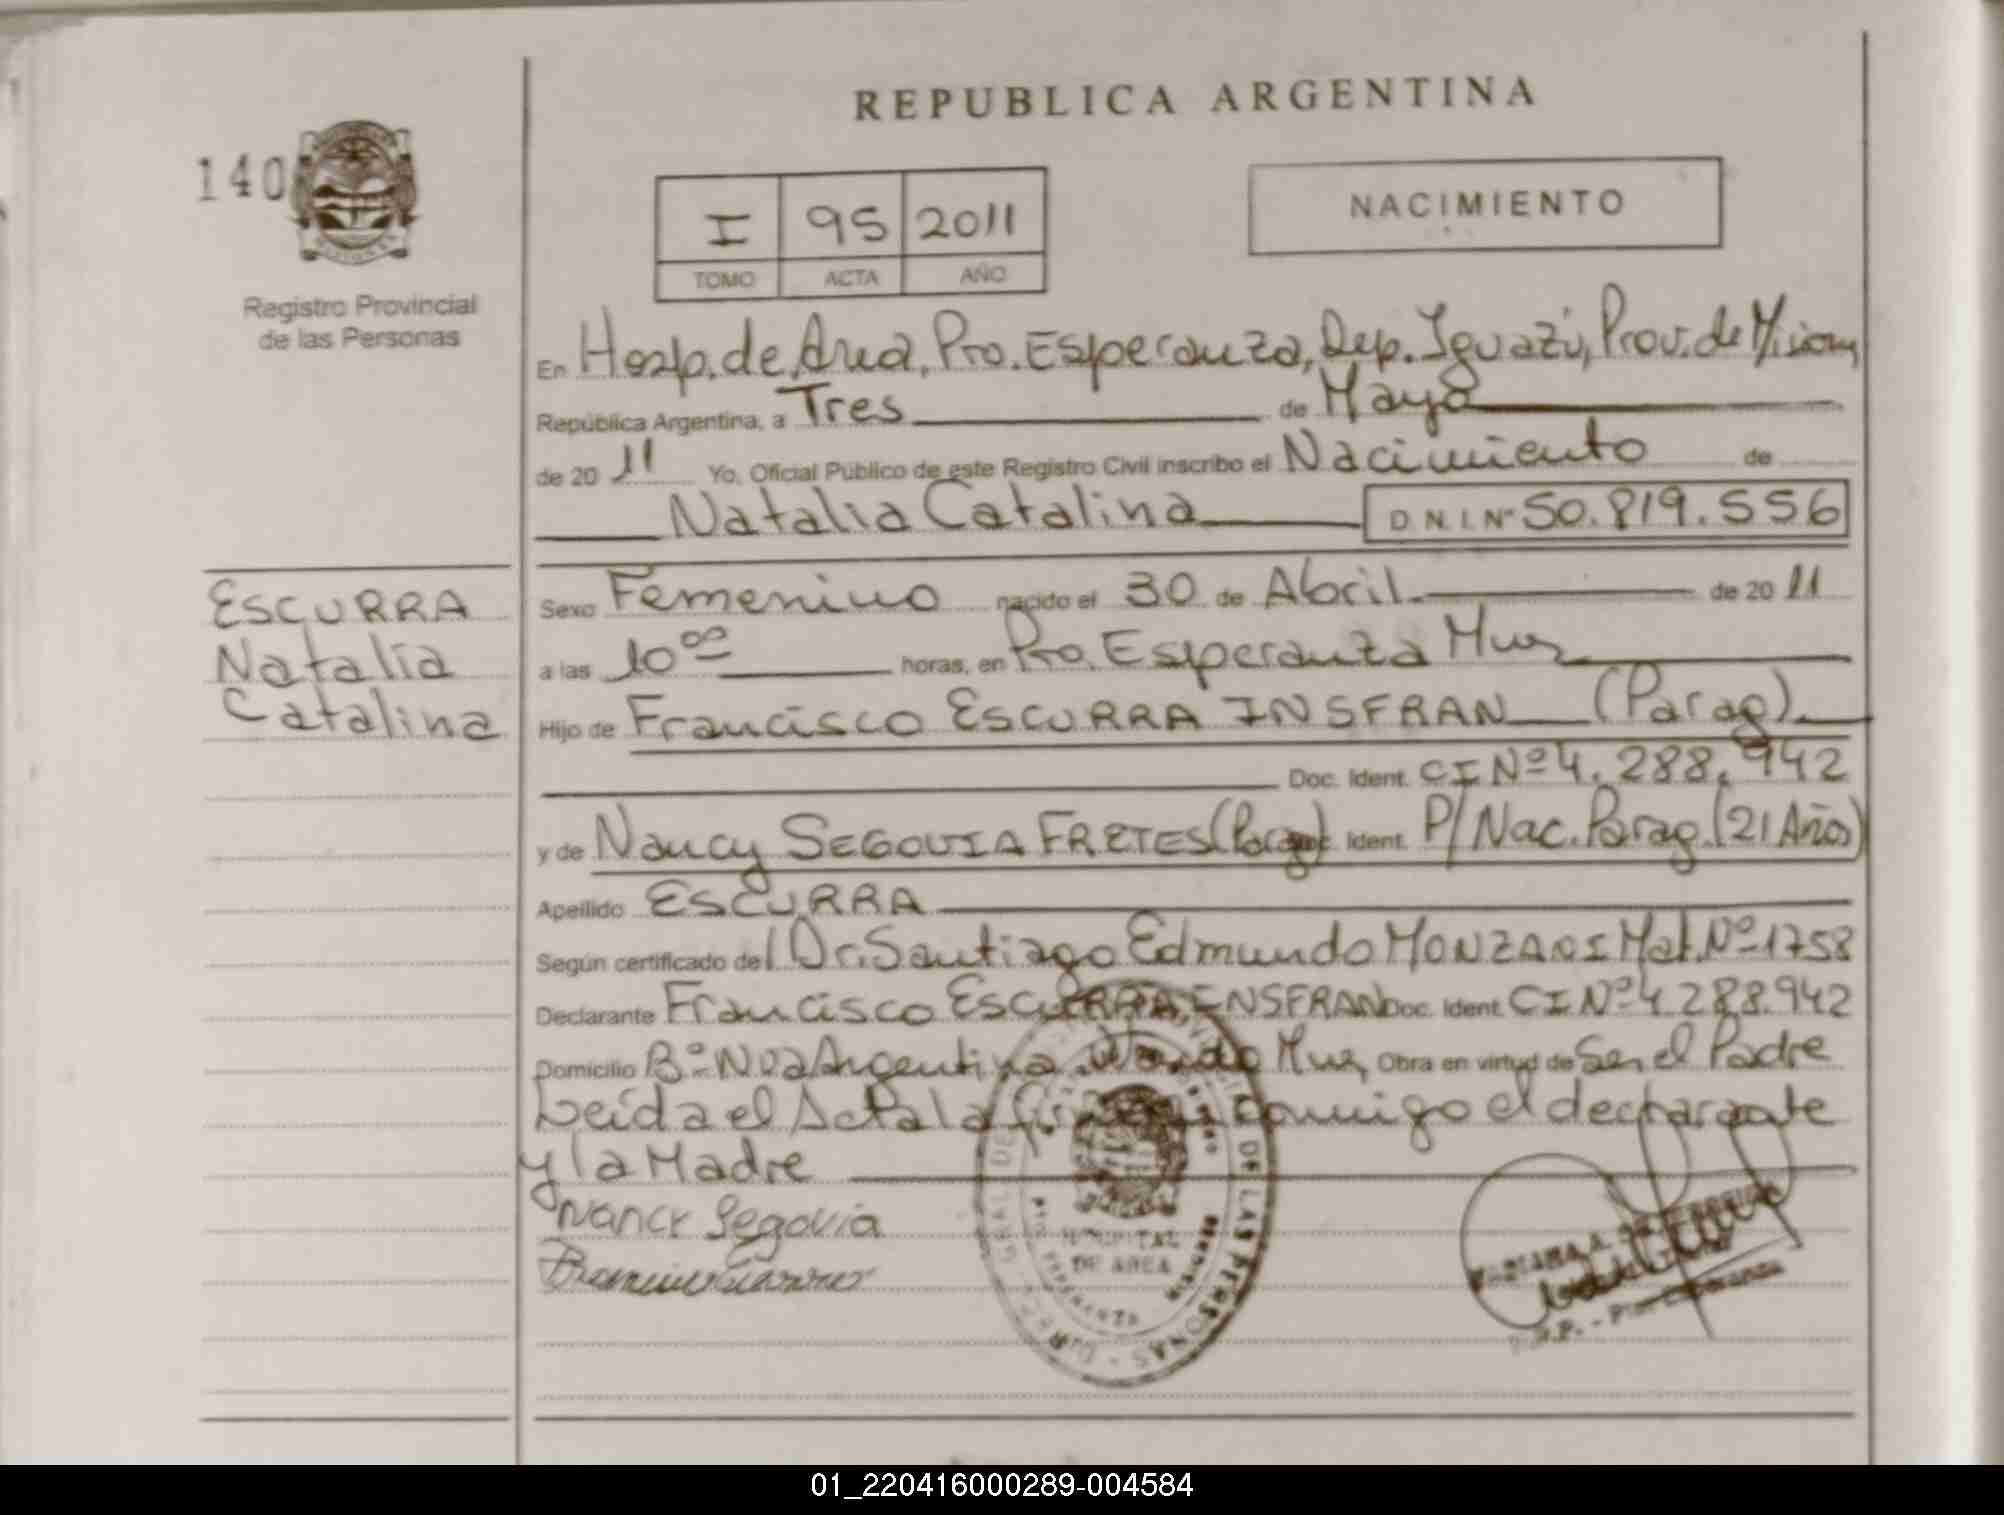 REPUBLICA ARGENTINA
140
Registro Provincial
de las Personas
I 95 2011
TOMO ACTA AÑO
NACIMIENTO
En Hosp. de Area, Pto. Esperanza, Dep. Iguazú, Prov. de Misiones,
República Argentina, a Tres de Mayo
de 20 11 Yo, Oficial Público de este Registro Civil inscribo el Nacimiento de
Natalia Catalina D.N.I. Nº 50.819.556
ESCURRA
Natalia
Catalina
Sexo Femenino nacido el 30 de Abril de 20 11
a las 10 00 horas, en Pto. Esperanza Mnes
Hijo de Francisco ESCURRA INSFRAN (Parag)
Doc. Ident. CI Nº 4.288.942
y de Nancy SEGOVIA FRETES (Parag) Ident. P/ Nac. Parag. (21 Años)
Apellido ESCURRA
Según certificado del Dr. Santiago Edmundo MONZANI Mat. Nº 1758
Declarante Francisco ESCURRA INSFRAN Doc. Ident. CI. Nº 4.288.942
Domicilio Bº Nva Argentina. Wanda Mnes Obra en virtud de Ser el Padre
Leída el Acta la conmigo el declarante
y la Madre
Nancy Segovia
DE LAS PERSONAS
HOSPITAL
DE AREA
01_220416000289-004584